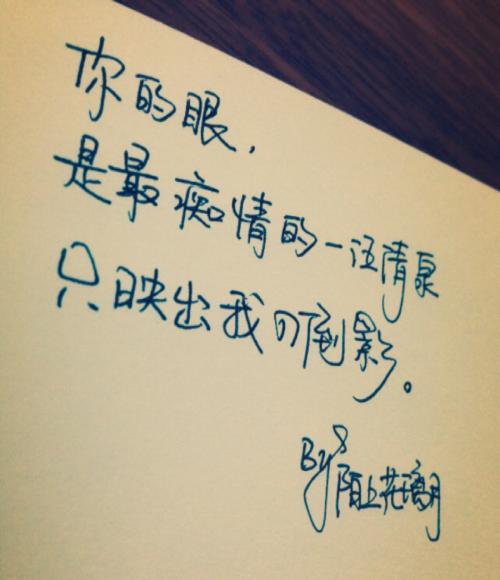 你的眼,
是最痴情的一泓清泉
只映出我的倒影。
By 陌上花璃月